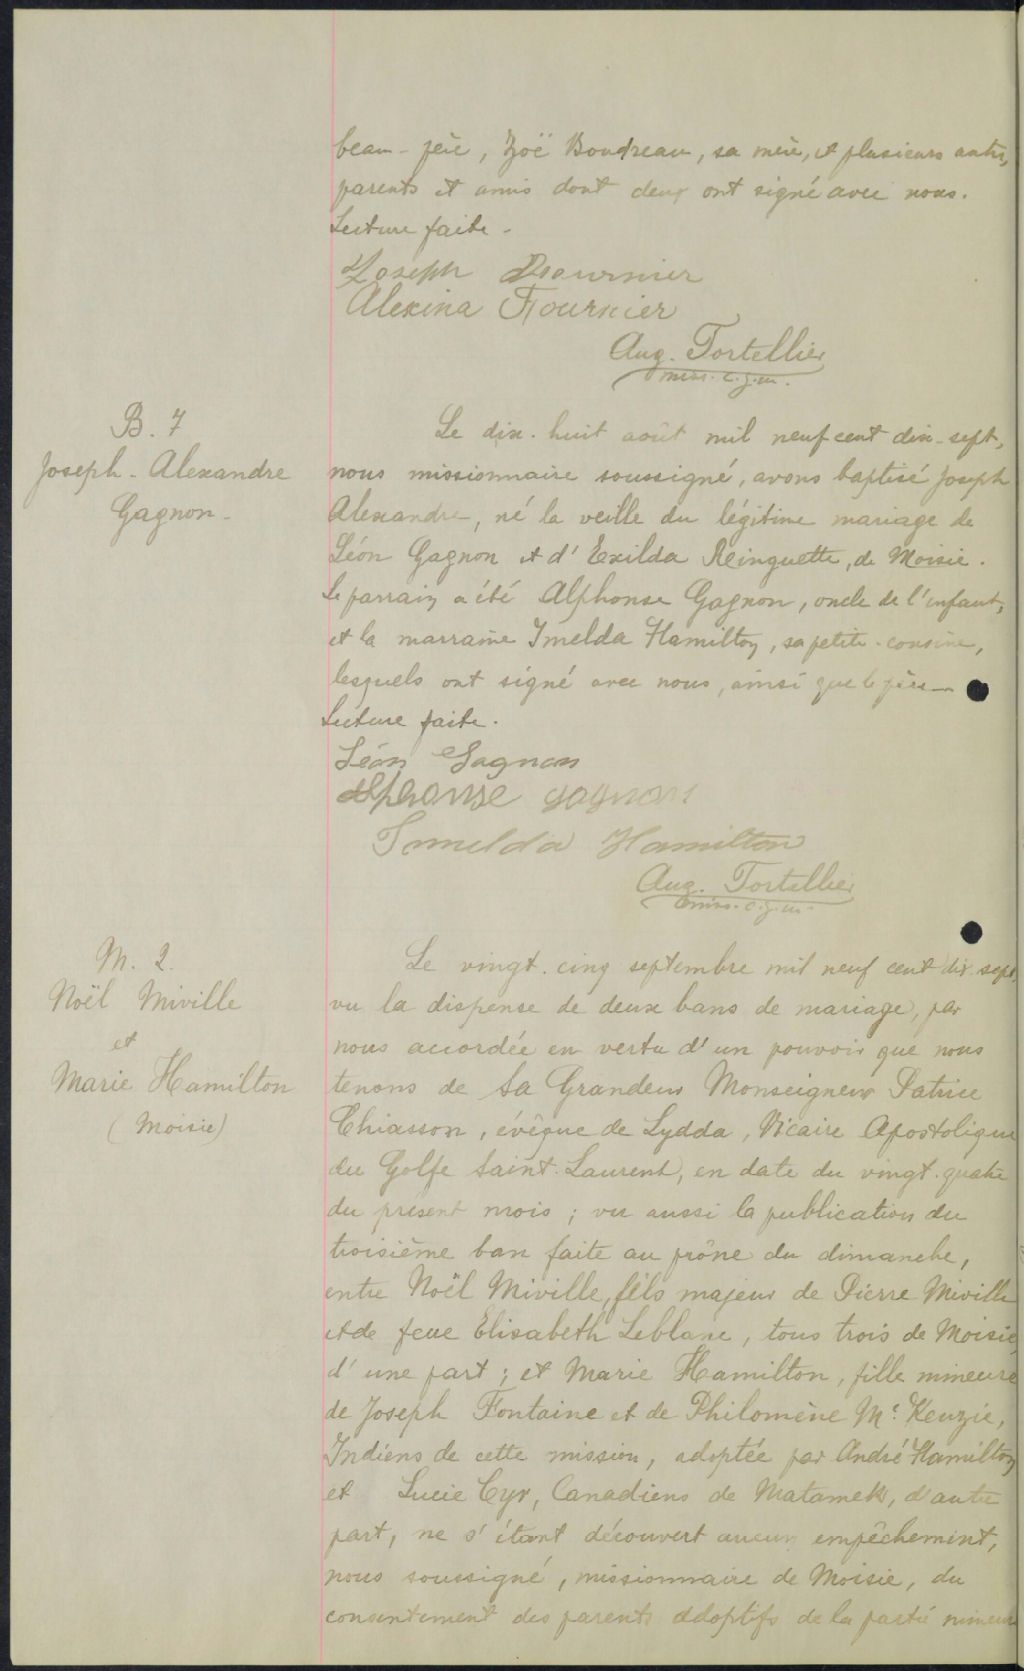 beau-père, Zoë Boudreau, sa mère, et plusieurs autres,
parents et amis dont deux ont signé avec nous.
Lecture faite -
Joseph Fournier
Alexina Fournier
Aug. Tortellier
miss. c.j.m.
B. 7
Joseph-Alexandre
Gagnon-
Le dix-huit août mil neuf cent dix-sept,
nous missionnaire soussigné, avons baptisé Joseph
Alexandre, né la veille du légitime mariage de
Léon Gagnon et d'Exilda Reinguette, de Moisie.
Le parrain a été Alphonse Gagnon, oncle de l'enfant,
et la marraine Imelda Hamilton, sa petite-cousine,
lesquels ont signé avec nous, ainsi que le père-
Lecture faite.
Léon Gagnon
Alphonse gagnon
Imelda Hamilton
Aug. Tortellier
miss. c.j.m.
M. 2.
Noël Miville
et
Marie Hamilton
(Moisie)
Le vingt-cinq septembre mil neuf cent dix-sept,
vu la dispense de deux bans de mariage, par
nous accordée en vertu d'un pouvoir que nous
tenons de Sa Grandeur Monseigneur Patrice
Chiasson, évêque de Lydda, Vicaire Apostolique
du Golfe Saint-Laurent, en date du vingt-quatre
du présent mois; vu aussi la publication du
troisième ban faite au prône du dimanche,
entre Noël Miville, fils majeur de Pierre Miville
et de feue Elisabeth Leblanc, tous trois de Moisie,
d'une part; et Marie Hamilton, fille mineure
de Joseph Fontaine et de Philomène Mc Kenzie,
Indiens de cette mission, adoptée par André Hamilton
et Lucie Cyr, Canadiens de Matamek, d'autre
part, ne s'étant découvert aucun empêchement,
nous soussigné, missionnaire de Moisie, du
consentement des parents adoptifs de la partie mineure